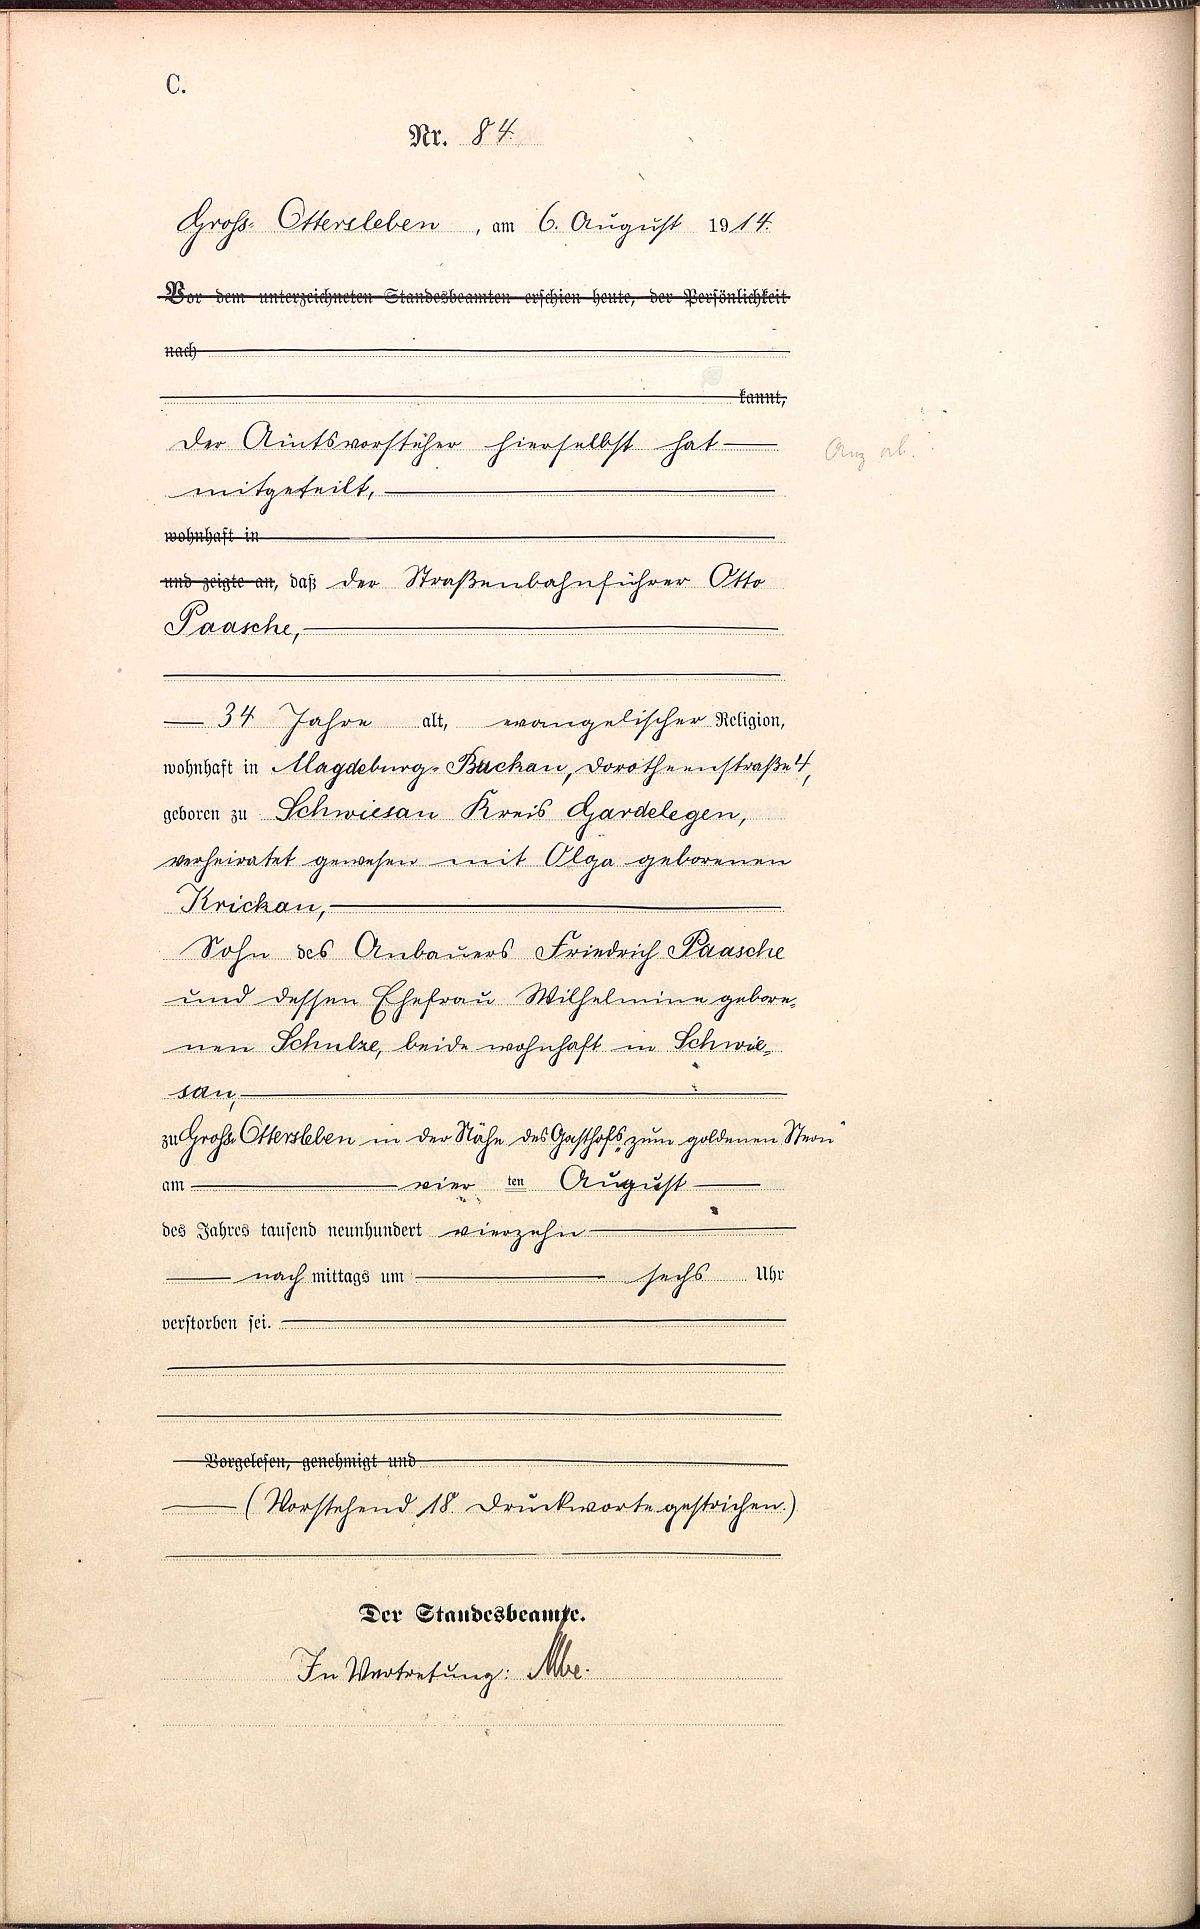 C.
Nr. 84.
Gross-Ottersleben, am 6. August 1914.
Vor dem unterzeichneten Standesbeamten erschien heute, der Persönlichkeit
nach
kannt,
Der Amtsvorsteher hierselbst hat
mitgeteilt,
wohnhaft in
und zeigte an, daß der Straßenbahnführer Otto
Paasche,
34 Jahre alt, evangelischer Religion,
wohnhaft in Magdeburg-Buckau, Dorotheenstraße 4,
geboren zu Schwiesau Kreis Gardelegen,
verheiratet gewesen mit Olga geborenen
Krickau,
Sohn des Anbauers Friedrich Paasche
und dessen Ehefrau Wilhelmine gebore-
nen Schulze, beide wohnhaft in Schwie-
sau,
zu Gross-Ottersleben in der Nähe des Gasthofs „zum goldenen Stern"
am vier ten August
des Jahres tausend neunhundert vierzehn
nach mittags um sechs Uhr
verstorben sei.
Vorgelesen, genehmigt und
(Vorstehend 18 Druckworte gestrichen.)
Der Standesbeamte.
In Vertretung: